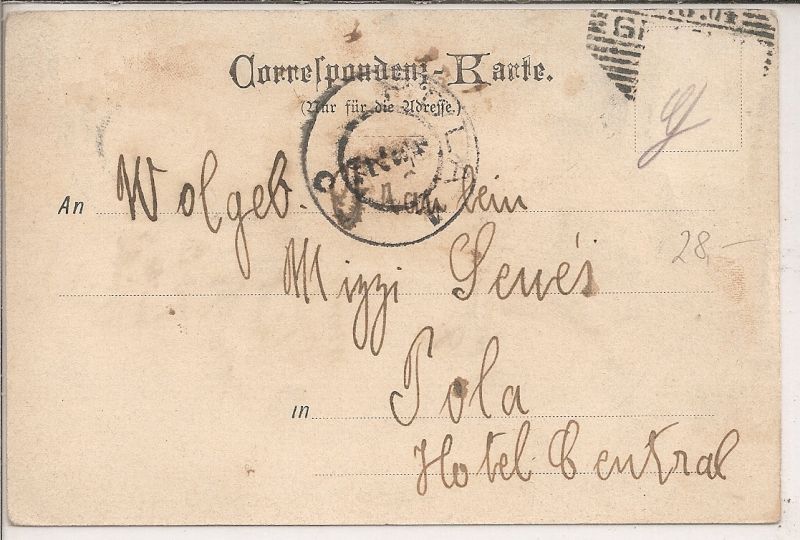 Correspondenz-Karte.
(Nur für die Adresse.)
An Wolgeb.
Mizzi
28,-
in Pola
Hotel Central